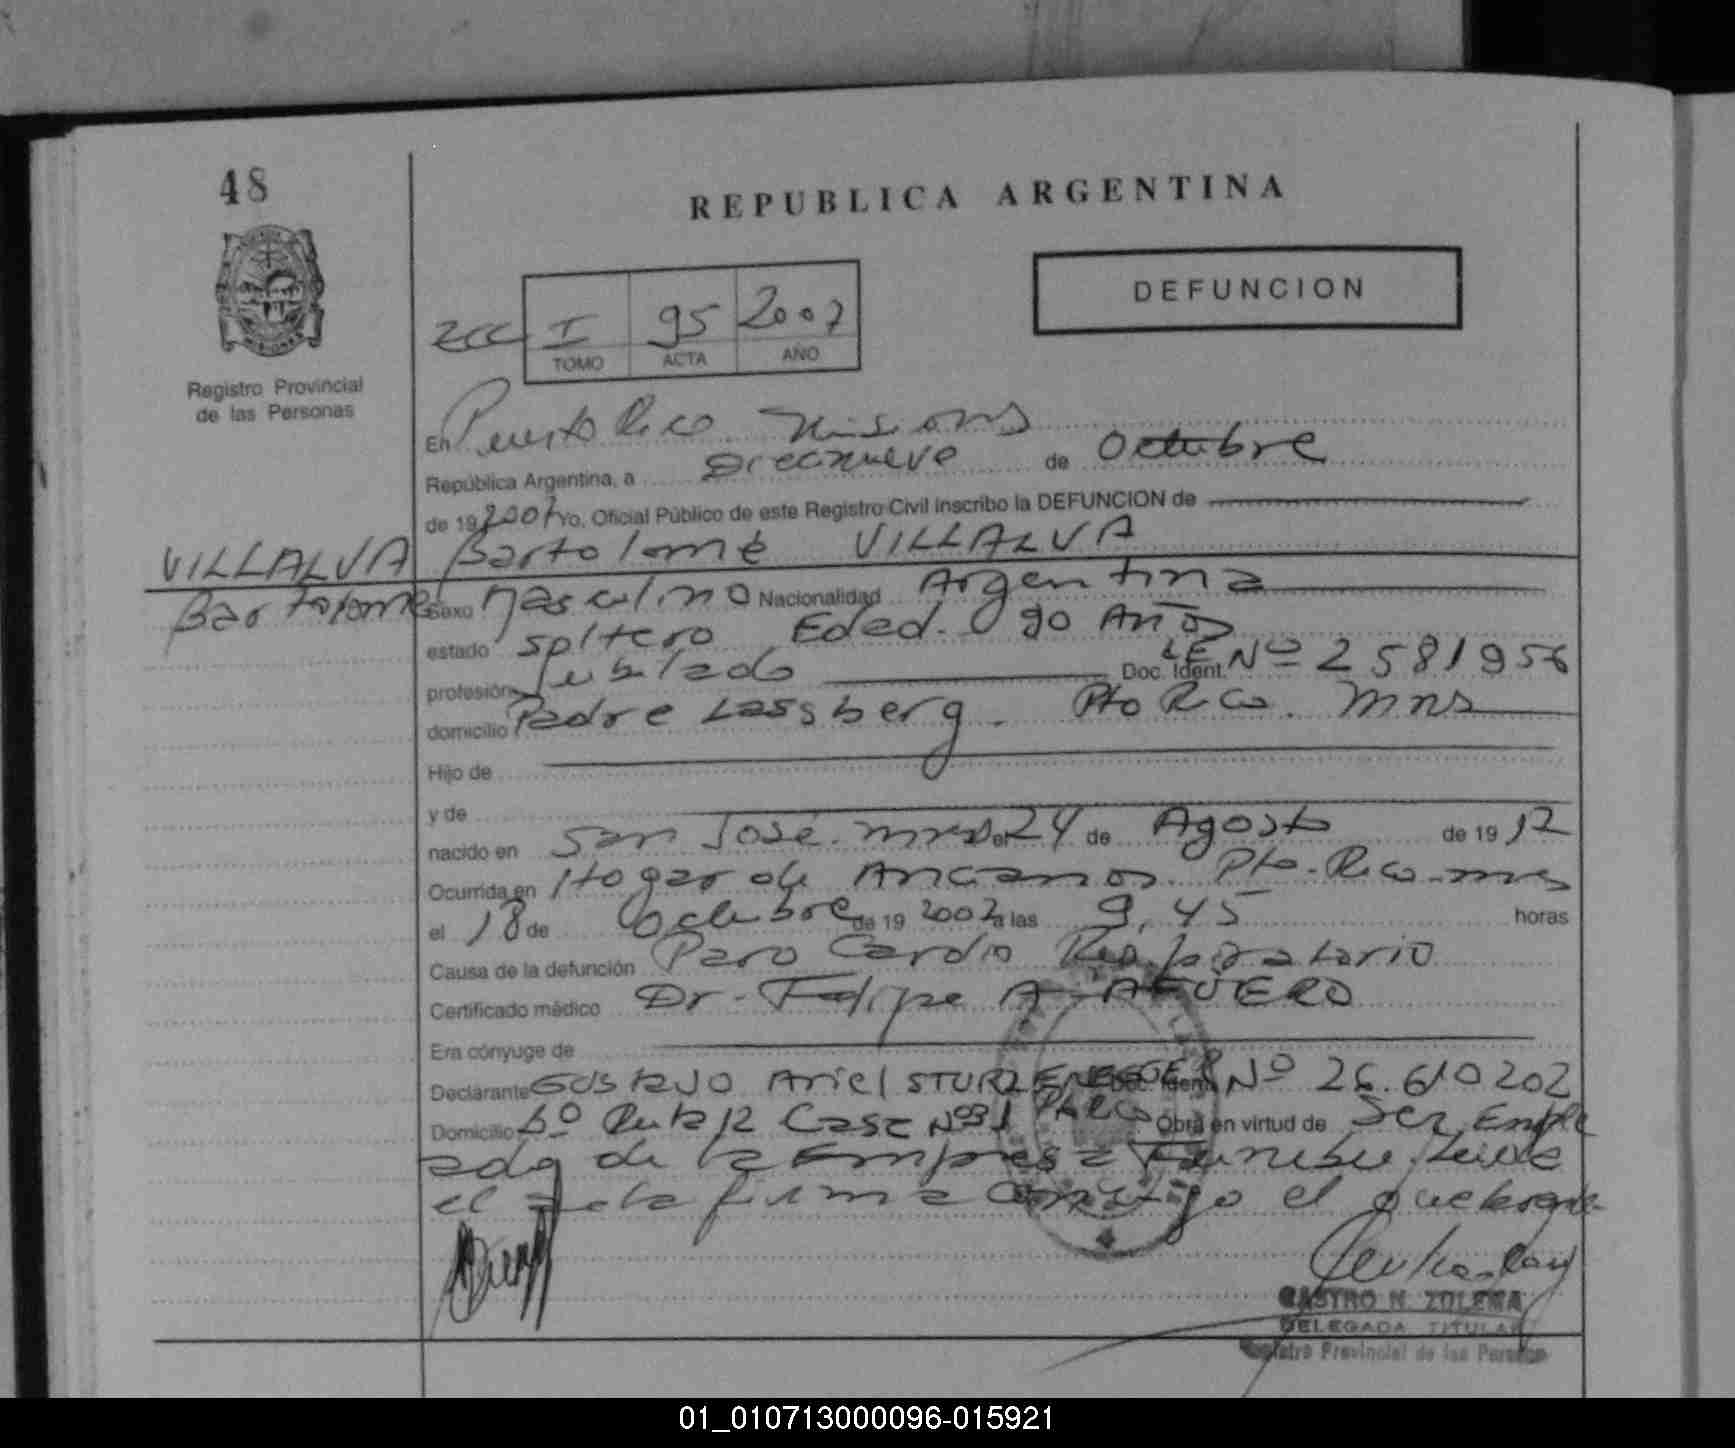 48
REPUBLICA ARGENTINA
DEFUNCION
I 95 2002
TOMO ACTA AÑO
Registro Provincial
de las Personas
En Puerto Rico Misiones
República Argentina, a diecinueve de Octubre
de 19 2002 Yo, Oficial Público de este Registro Civil inscribo la DEFUNCION de
VILLALVA Bartolomé VILLALVA
Bartolomé Sexo Masculino Nacionalidad Argentina
estado soltero Edad. 90 Años
profesión Jubilado Doc. Ident. LE Nº 2581956
domicilio Padre Lassberg. Pto Rico. Mns
Hijo de
y de
nacido en San José. mns el 24 de Agosto de 19 12
Ocurrida en Hogar de Ancianos Pto. Rico - mns
el 18 de Octubre de 19 2002 a las 9,45 horas
Causa de la defunción Paro Cardio Respiratorio
Certificado médico Dr. Felipe A. AGÜERO
Era cónyuge de
Declarante GUSTAVO Ariel STURZENEGGER Doc. Ident. Nº 26.610202
Domicilio Bº Ruta 12 Casa Nº 31 Pto Rco Obra en virtud de Ser Emple
ado de la Empresa Funebre, leida
el acta firma conmigo el
CASTRO N. ZULEMA
DELEGADA TITULAR
Registro Provincial de las Personas
01_010713000096-015921